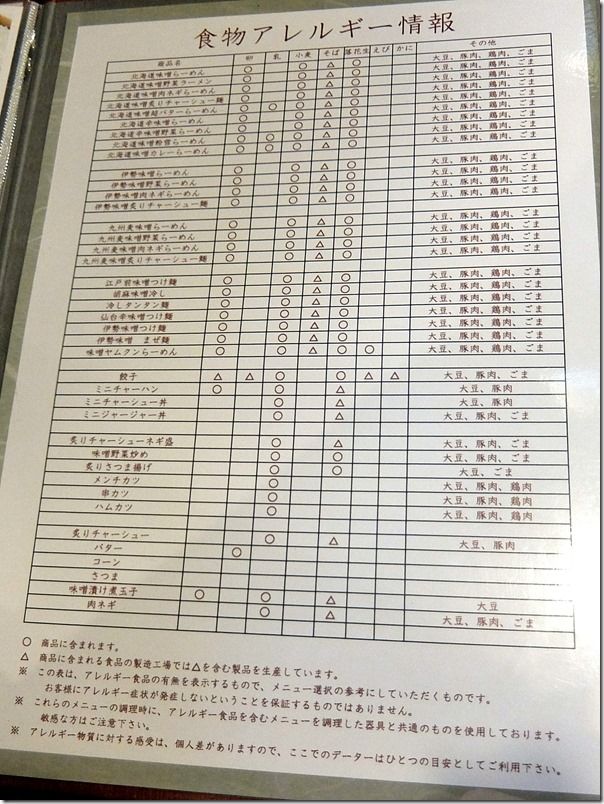 食物アレルギー情報
商品名 卵 乳 小麦 そば 落花生 えび かに その他
北海道味噌らーめん ○ ○ △ ○ 大豆、豚肉、鶏肉、ごま
北海道味噌野菜ラーメン ○ ○ △ ○ 大豆、豚肉、鶏肉、ごま
北海道味噌肉ネギらーめん ○ ○ △ ○ 大豆、豚肉、鶏肉、ごま
北海道味噌炙りチャーシュー麺 ○ ○ △ ○ 大豆、豚肉、鶏肉、ごま
北海道味噌超バターらーめん ○ ○ ○ △ ○ 大豆、豚肉、鶏肉、ごま
北海道辛味噌らーめん ○ ○ △ ○ 大豆、豚肉、鶏肉、ごま
北海道辛味噌野菜らーめん ○ ○ △ ○ 大豆、豚肉、鶏肉、ごま
北海道味噌粉雪らーめん ○ ○ ○ △ ○ 大豆、豚肉、鶏肉、ごま
北海道味噌カレーらーめん ○ ○ ○ △ ○ 大豆、豚肉、鶏肉、ごま
伊勢味噌らーめん ○ ○ △ ○ 大豆、豚肉、鶏肉、ごま
伊勢味噌野菜らーめん ○ ○ △ ○ 大豆、豚肉、鶏肉、ごま
伊勢味噌肉ネギらーめん ○ ○ △ ○ 大豆、豚肉、鶏肉、ごま
伊勢味噌炙りチャーシュー麺 ○ ○ △ ○ 大豆、豚肉、鶏肉、ごま
九州麦味噌らーめん ○ ○ △ ○ 大豆、豚肉、鶏肉、ごま
九州麦味噌野菜らーめん ○ ○ △ ○ 大豆、豚肉、鶏肉、ごま
九州麦味噌肉ネギらーめん ○ ○ △ ○ 大豆、豚肉、鶏肉、ごま
九州麦味噌炙りチャーシュー麺 ○ ○ △ ○ 大豆、豚肉、鶏肉、ごま
江戸前味噌つけ麺 ○ ○ △ ○ 大豆、豚肉、鶏肉、ごま
胡麻味噌冷し ○ ○ △ ○ 大豆、豚肉、鶏肉、ごま
冷しタンタン麺 ○ ○ △ ○ 大豆、豚肉、鶏肉、ごま
仙台辛味噌つけ麺 ○ ○ △ ○ 大豆、豚肉、鶏肉、ごま
伊勢味噌つけ麺 ○ ○ △ ○ 大豆、豚肉、鶏肉、ごま
伊勢味噌 まぜ麺 ○ ○ △ ○ 大豆、豚肉、鶏肉、ごま
味噌ヤムクンらーめん ○ ○ △ ○ ○ 大豆、豚肉、鶏肉、ごま
餃子 △ △ ○ ○ △ △ 大豆、豚肉、ごま
ミニチャーハン ○ ○ △ 大豆、豚肉
ミニチャーシュー丼 ○ △ 大豆、豚肉
ミニジャージャー丼 ○ △ 大豆、豚肉、ごま
炙りチャーシューネギ盛 ○ △ 大豆、豚肉、ごま
味噌野菜炒め ○ ○ 大豆、豚肉、ごま
炙りさつま揚げ ○ ○ 大豆、ごま
メンチカツ ○ 大豆、豚肉、鶏肉
串カツ ○ 大豆、豚肉、鶏肉
ハムカツ ○ 大豆、豚肉、鶏肉
炙りチャーシュー ○ △ 大豆、豚肉
バター ○
コーン
さつま
味噌漬け煮玉子 ○ ○ △ 大豆
肉ネギ ○ △ 大豆、豚肉、ごま
○ 商品に含まれます。
△ 商品に含まれる食品の製造工場では△を含む製品を生産しています。
※ この表は、アレルギー食品の有無を表示するもので、メニュー選択の参考にしていただくものです。
お客様にアレルギー症状が発症しないということを保証するものではありません。
※ これらのメニューの調理時に、アレルギー食品を含むメニューを調理した器具と共通のものを使用しております。
敏感な方はご注意下さい。
※ アレルギー物質に対する感受は、個人差がありますので、ここでのデーターはひとつの目安としてご利用下さい。